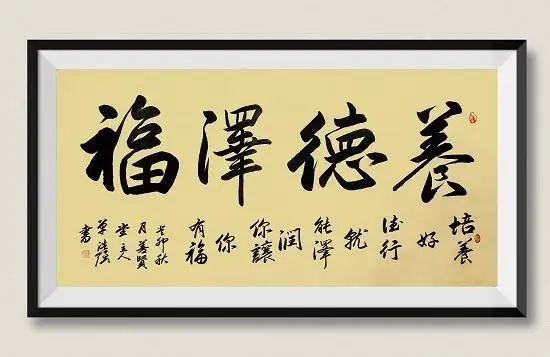 養德澤福
培養
好
德行
就
能澤
潤
你讓
你
有福
癸卯秋
月善賢
堂主人
書